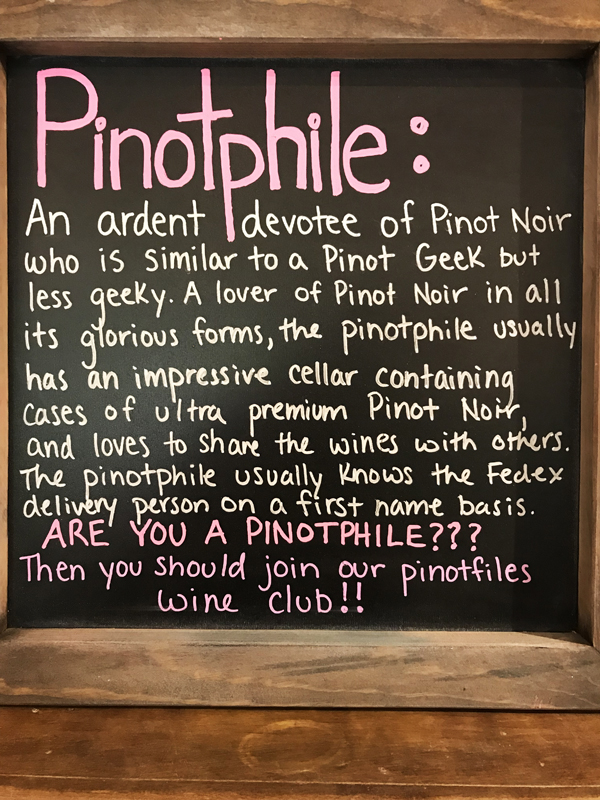 Pinotphile:
An ardent devotee of Pinot Noir
who is similar to a Pinot Geek but
less geeky. A lover of Pinot Noir in all
its glorious forms, the pinotphile usually
has an impressive cellar containing
cases of ultra premium Pinot Noir,
and loves to share the wines with others.
The pinotphile usually knows the Fedex
delivery person on a first name basis.
ARE YOU A PINOTPHILE???
Then you should join our pinotfiles
wine club!!